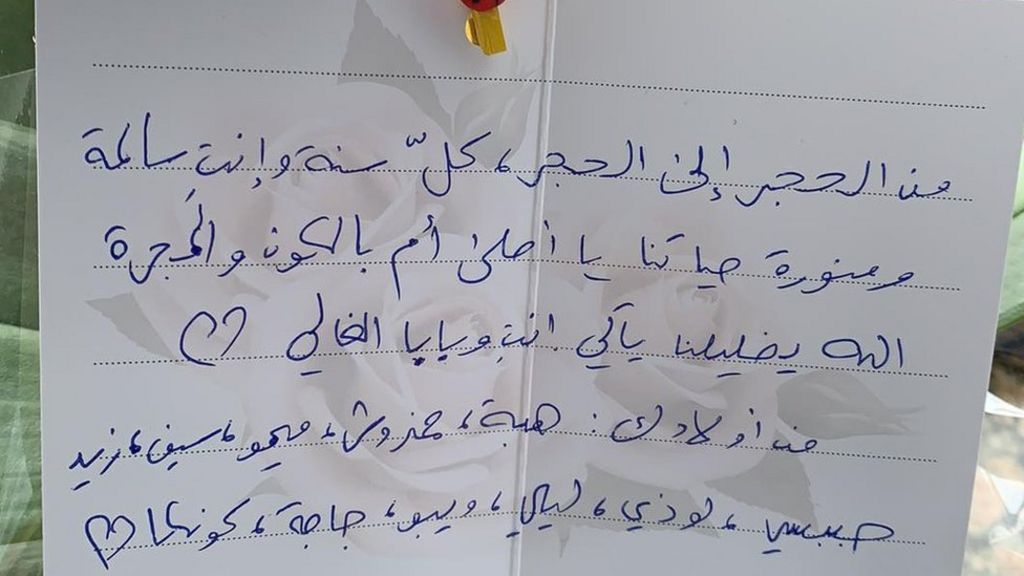 من الحجر إلى الحجر، كلّ سنة وإنتِ سالمة
ومنورة حياتنا يا أحلى أم بالكون والمَجرة
الله يخليلنا ياكي انتِ وبابا الغالي ♡
من أولادك: هبة، حمزوش، ميمو، سيف، زيد
حبسي، لوذي، ليلي، ويبو، جاجة، كونكا ♡